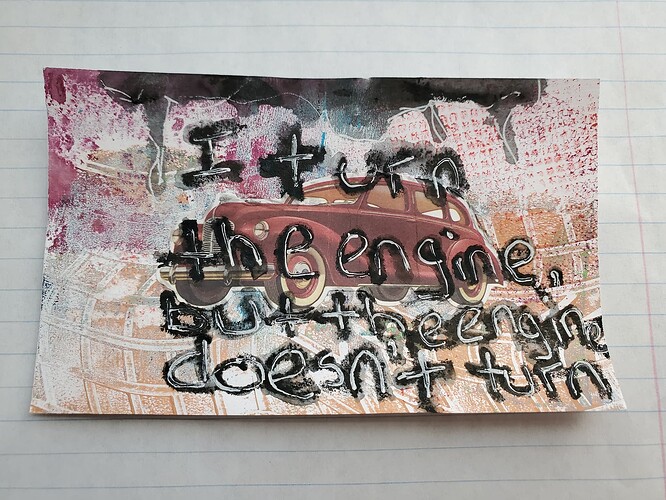 I turn
the engine,
but the engine
doesn't turn